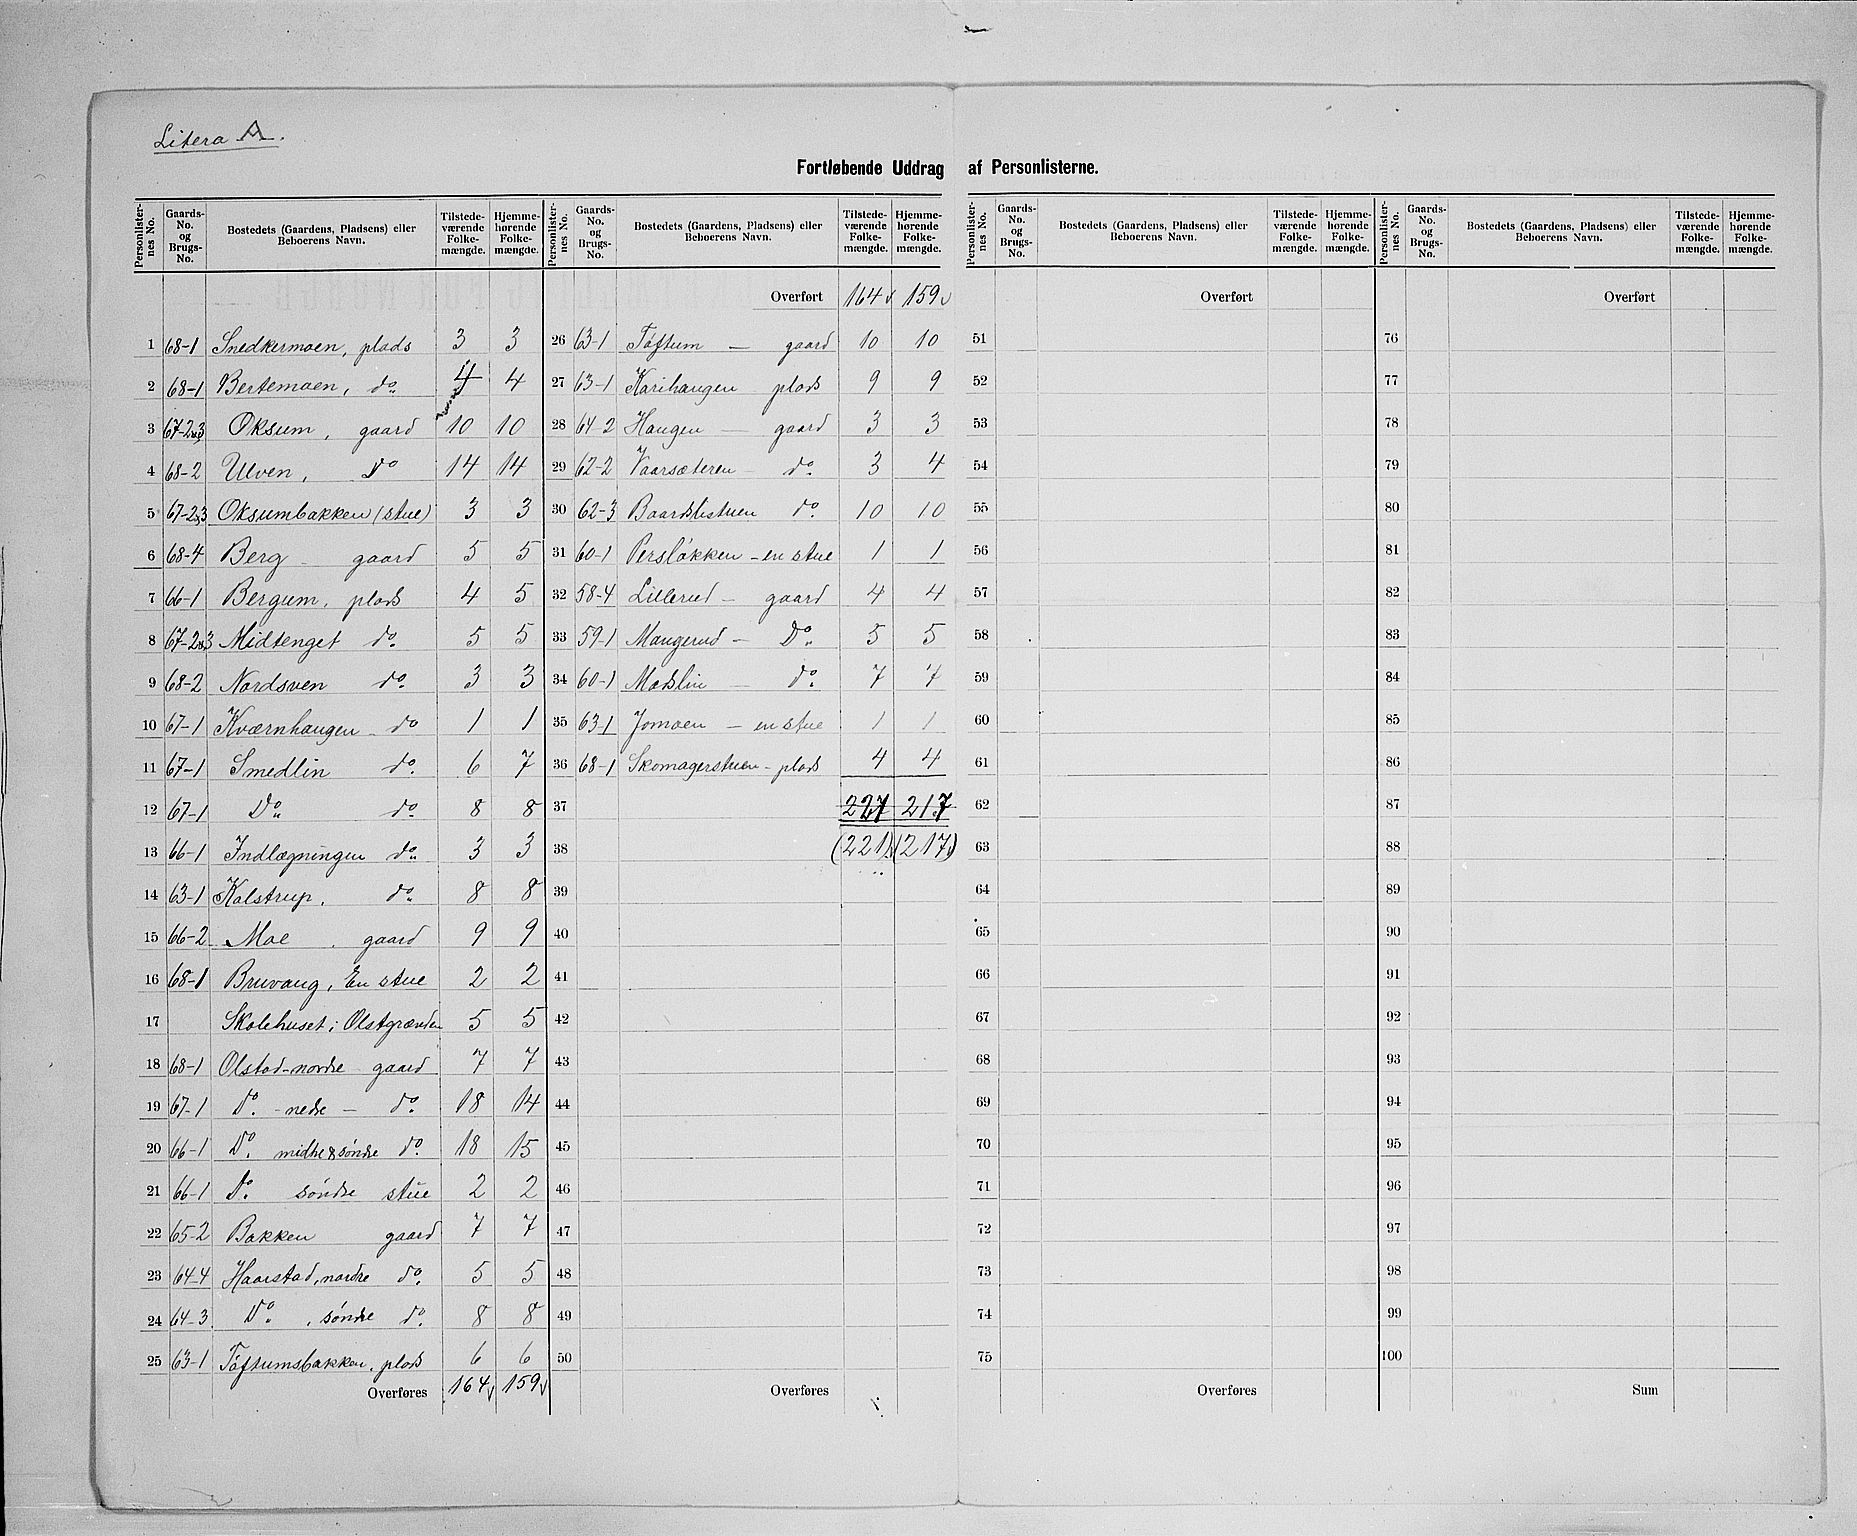 Litera A.
Fortløbende Uddrag af Personlisterne.
Personlister-nes No. | Gaards-No. og Brugs-No. | Bostedets (Gaardens, Pladsens) eller Beboerens Navn. | Tilstede-værende Folke-mængde. | Hjemme-hørende Folke-mængde.
1 68-1 Snedkermoen, plads 3 3
2 68-1 Bertemoen, do 4 4
3 67-2&3 Oksum, gaard 10 10
4 68-2 Ulven, Do 14 14
5 67-2&3 Oksumbakken (stue) 3 3
6 68-4 Berg - gaard 5 5
7 66-1 Bergum, plads 4 5
8 67-2&3 Midtenget do. 5 5
9 68-2 Nordsven do. 3 3
10 67-1 Kværnhaugen - do 1 1
11 67-1 Smedlin do. 6 7
12 67-1 Do. do. 8 8
13 66-1 Indlægningen do. 3 3
14 63-1 Kolstrup, do. 8 8
15 66-2 Moe . gaard 9 9
16 68-1 Bruvang, En stue 2 2
17 Skolehuset i Olstgrænden 5 5
18 68-1 Olstad-nordre gaard 7 7
19 67-1 Do. - nedre - do. 18 14
20 66-1 Do. midtre & søndre do. 18 15
21 66-1 Do. søndre stue 2 2
22 65-2 Bakken gaard 7 7
23 64-4 Haarstad, nordre do. 5 5
24 64-3 Do. , søndre do. 8 8
25 63-1 Tøftumsbakken, plads 6 6
Overføres 164 159
Personlister-nes No. | Gaards-No. og Brugs-No. | Bostedets (Gaardens, Pladsens) eller Beboerens Navn. | Tilstede-værende Folke-mængde. | Hjemme-hørende Folke-mængde.
Overført 164 159
26 63-1 Tøftum — gaard 10 10
27 63-1 Karihaugen plads 9 9
28 64-2 Haugen — gaard 3 3
29 62-2 Vaarsæteren - do. 3 4
30 62-3 Baardslistuen do. 10 10
31 60-1 Persløkken - en stue 1 1
32 58-4 Lillerud - gaard 4 4
33 59-1 Maugerud - Do. 5 5
34 60-1 Modslin - do. 7 7
35 63-1 Jomoen - en stue 1 1
36 68-1 Skomagerstuen - plads 4 4
37 227 217
38 (221) (217)
39
40
41
42
43
44
45
46
47
48
49
50
Overføres
Personlister-nes No. | Gaards-No. og Brugs-No. | Bostedets (Gaardens, Pladsens) eller Beboerens Navn. | Tilstede-værende Folke-mængde. | Hjemme-hørende Folke-mængde.
Overført
51
52
53
54
55
56
57
58
59
60
61
62
63
64
65
66
67
68
69
70
71
72
73
74
75
Overføres
Personlister-nes No. | Gaards-No. og Brugs-No. | Bostedets (Gaardens, Pladsens) eller Beboerens Navn. | Tilstede-værende Folke-mængde. | Hjemme-hørende Folke-mængde.
Overført
76
77
78
79
80
81
82
83
84
85
86
87
88
89
90
91
92
93
94
95
96
97
98
99
100
Sum